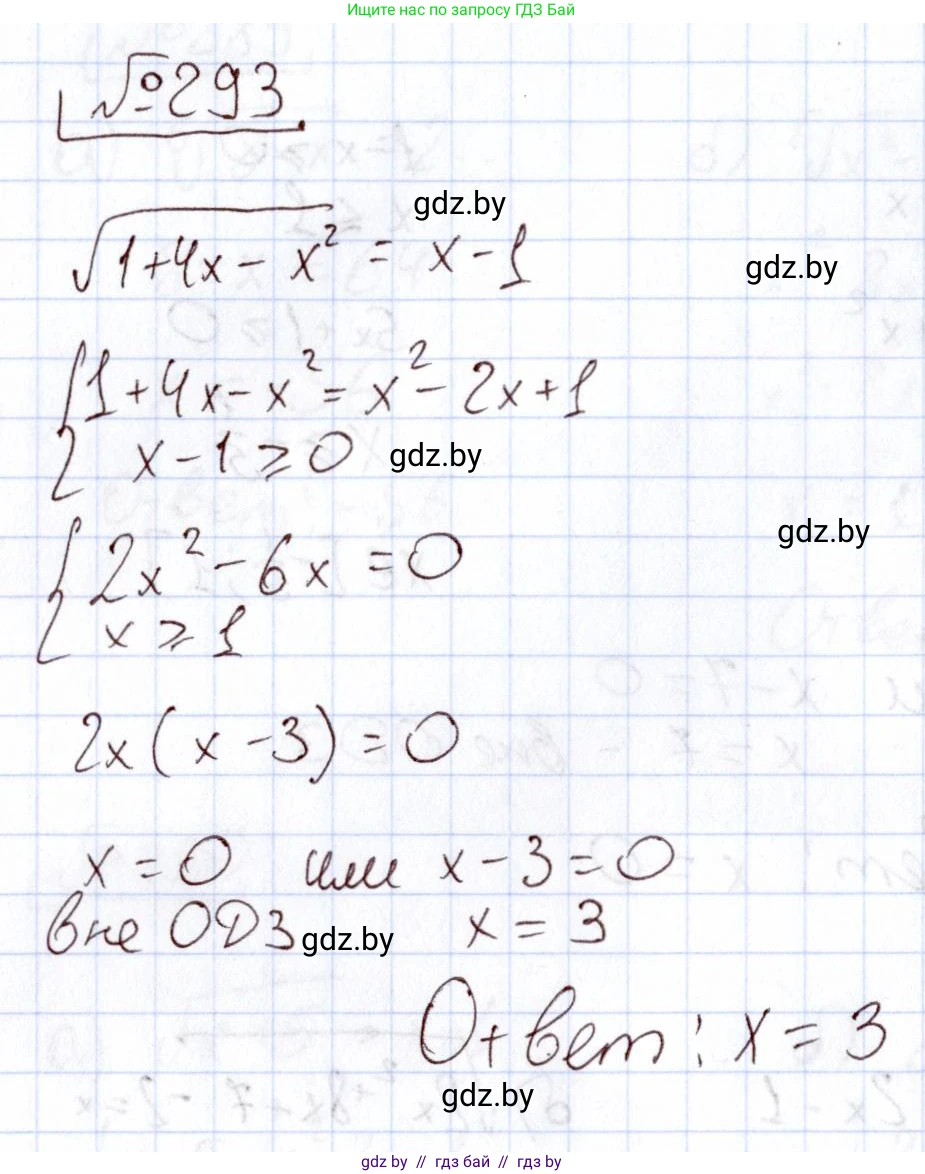 Ищите нас по запросу ГДЗ Бай
№293
√(1+4x-x²) = x-1
gdz.by
gdz.by
{1+4x-x² = x²-2x+1
x-1⩾0
gdz.by
gdz.by
{2x²-6x=0
x⩾1
2x(x-3)=0
x=0 или x-3=0
вне ОДЗ x=3
gdz.by
Ответ: x=3
gdz.by
gdz.by // гдз бай // гдз by